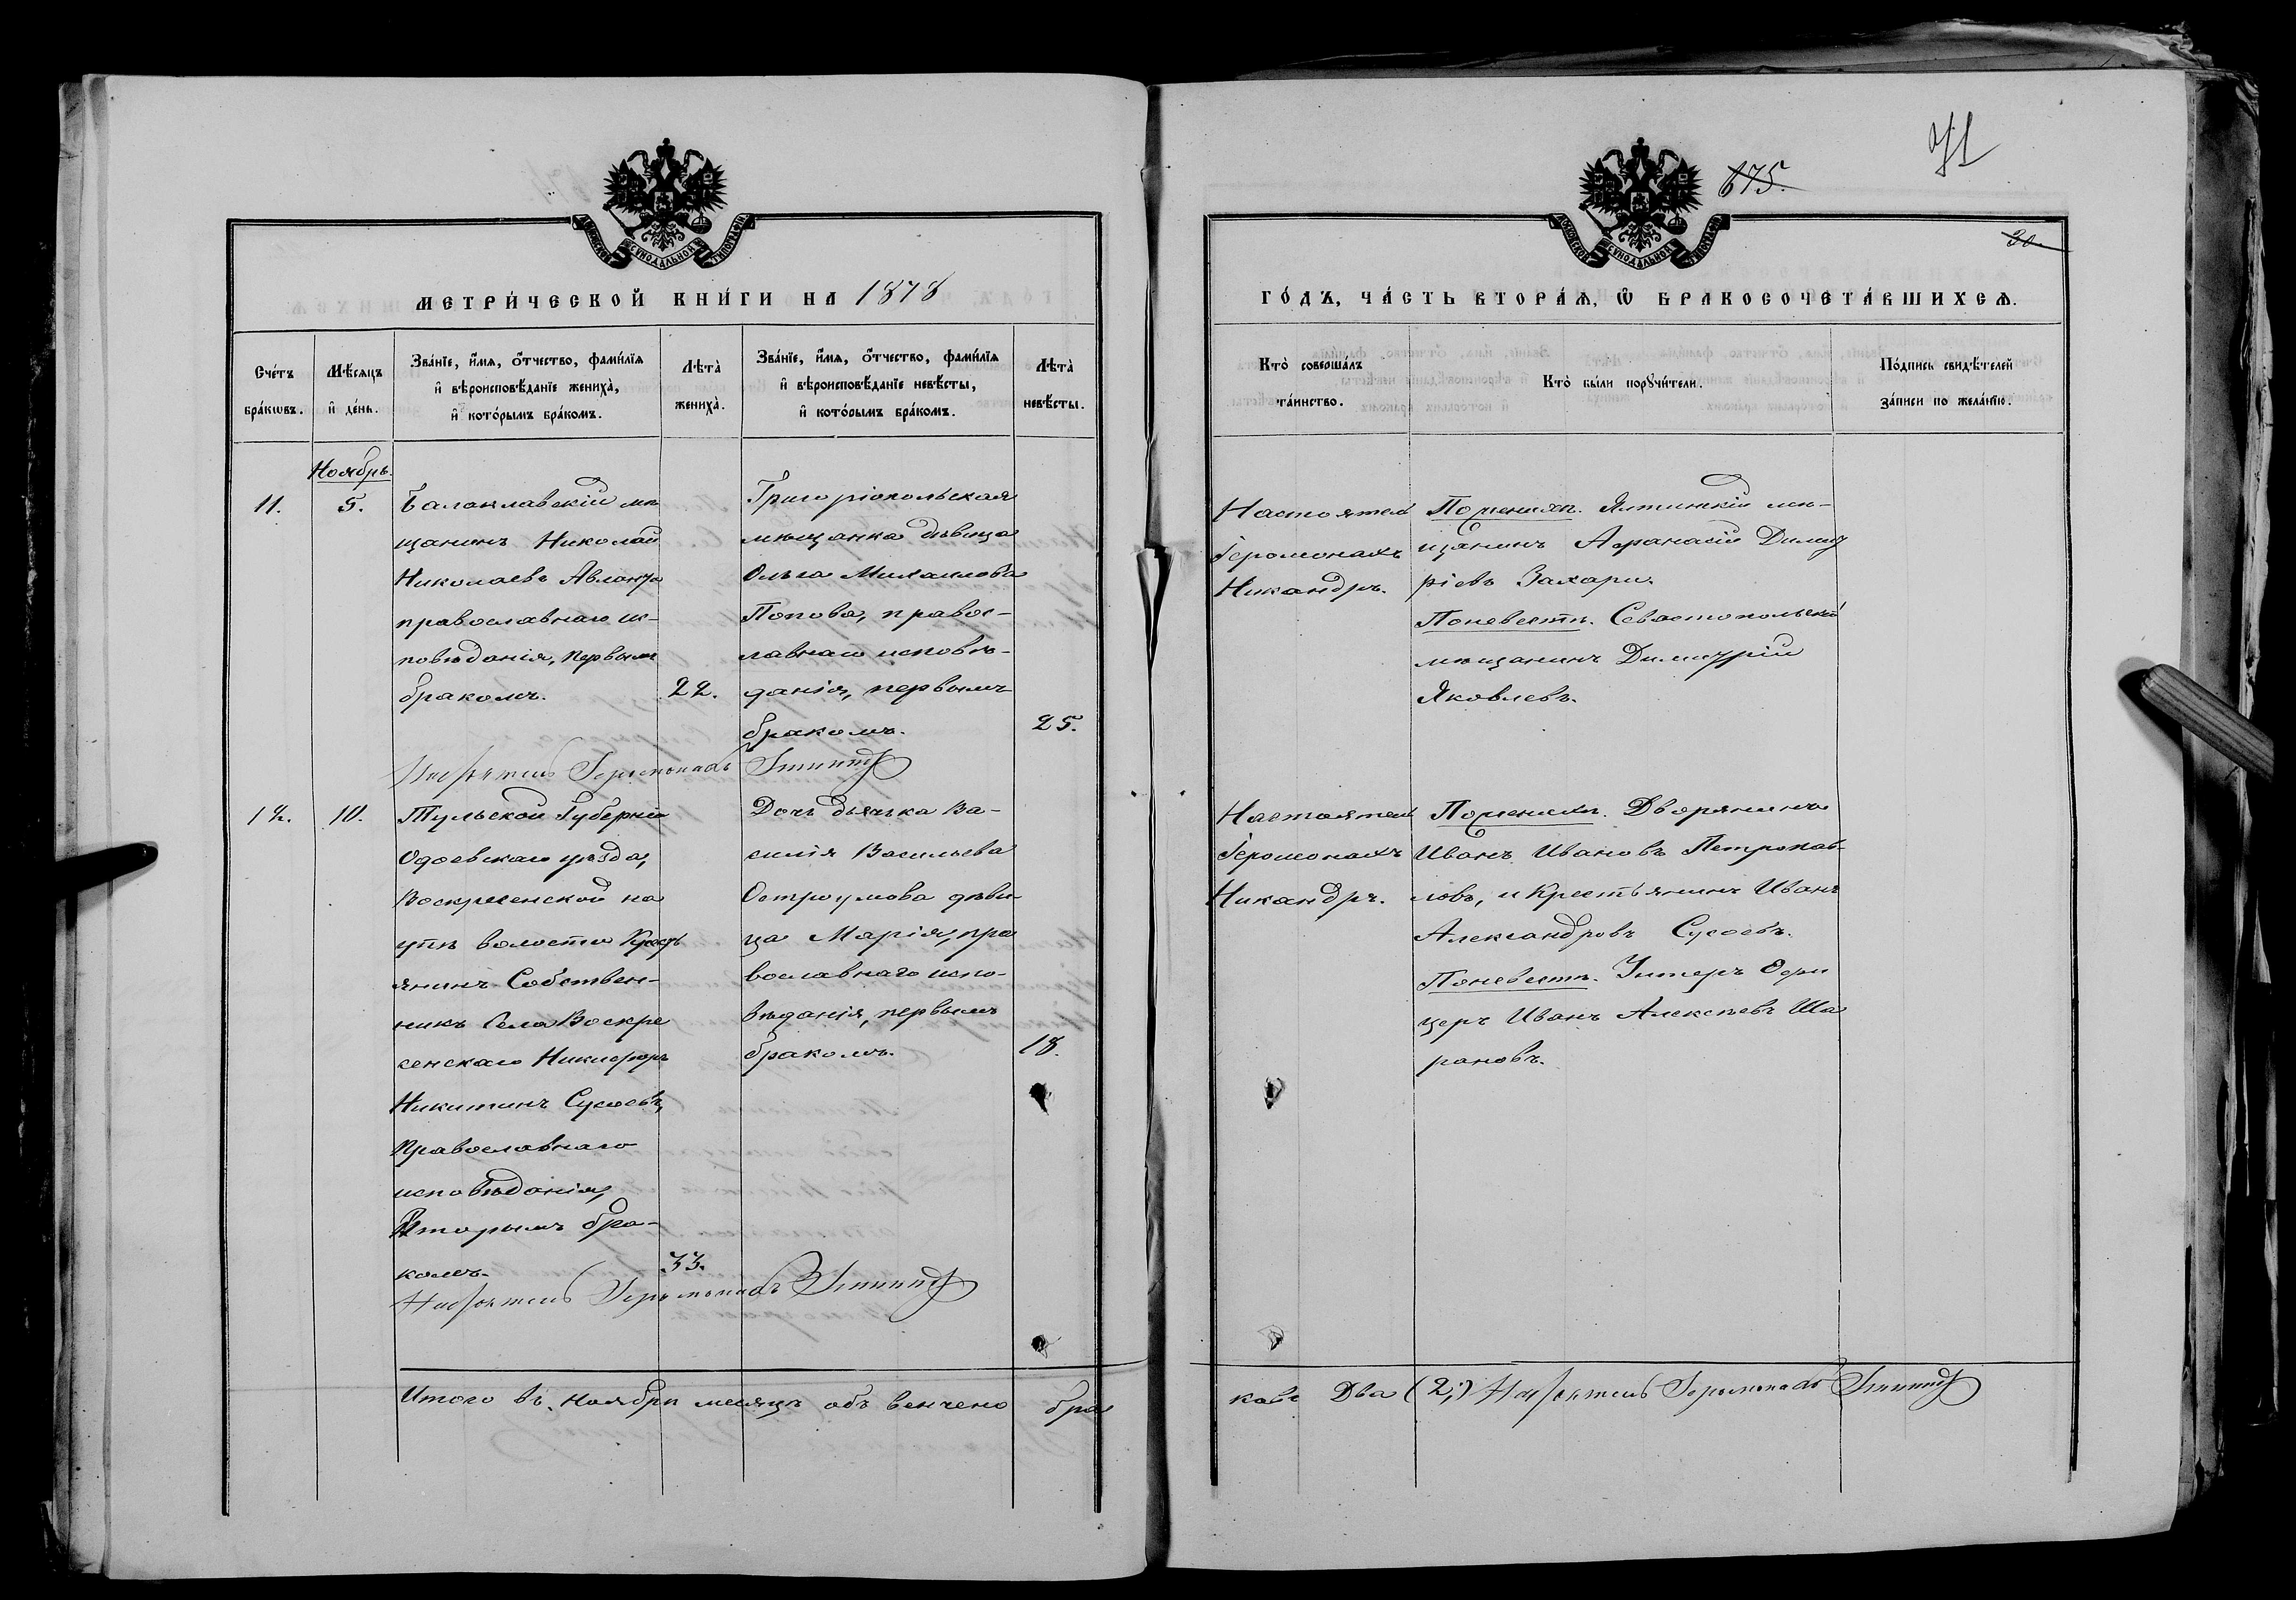 71
675.
30.
МОСКОВСКОЙ СѴНОДАЛЬНОЙ ТИПОГРАФІИ
МОСКОВСКОЙ СѴНОДАЛЬНОЙ ТИПОГРАФІИ
МЕТРИ́ЧЕСКОЙ КНИ́ГИ НА 1878
ГО́ДЪ, ЧА́СТЬ ВТОРА́Ѧ, Ѿ БРАКОСОЧЕТА́ВШИХСѦ.
Сче́тъ
бра́кѡвъ.
Мѣ́сяцъ
и҆ де́нь.
Зва́нїе, и҆́мѧ, о҆́тчество, фами́лїѧ
и҆ вѣроисповѣ́данїе жениха̀,
и҆ кото́рымъ бра́комъ.
Лѣта̀
жениха̀.
Зва́нїе, и҆́мѧ, о҆́тчество, фами́лїѧ
и҆ вѣроисповѣ́данїе невѣ́сты,
и҆ кото́рымъ бра́комъ.
Лѣта̀
невѣ́сты.
Кто̀ соверша́лъ
та́инство.
Кто̀ бы́ли порꙋчи́тели.
По́дпись свидѣ́телей
за́писи по жела́нїю.
Ноябрь.
11.
5.
Балаклавскій мѣ
щанинъ Николай
Николаевъ Авланъ
православнаго ис-
повѣданія, первымъ
бракомъ.
22.
Григоріопольская
мѣщанка дѣвица
Ольга Михаилова
Попова, правос-
лавнаго исповѣ-
данія, первымъ
бракомъ.
25.
Настоятель
Іеромонахъ
Никандръ.
По женихѣ. Ялтинскій мѣ-
щанинъ Афанасій Димит
ріевъ Захари.
По невестѣ. Севастопольскій
мѣщанинъ Димитрій
Яковлевъ.
Настоятель Іеромонахъ
12.
10.
Тульской Губерніи
Одоевскаго уѣзда,
Воскресенской на
упѣ волости Кресть
янинъ Собствен-
никъ Села Воскре
сенскаго Никифоръ
Никитинъ Сусоевъ,
Православнаго
исповѣданія,
Вторымъ бра-
комъ.
33.
Дочь дьячка Ва-
силія Васильева
Остроумова дѣви-
ца Марія, пра
вославнаго испо-
вѣданія, первымъ
бракомъ.
18.
Настоятель
Іеромонахъ
Никандръ.
По женихѣ. Дворянинъ
Иванъ Ивановъ Петропав-
ловъ, и Крестьянинъ Иванъ
Александровъ Сусоевъ.
По невестѣ. Унтеръ Офи
церъ Иванъ Алексѣевъ Ша
рановъ.
Настоятель Іеромонахъ
Итого въ Ноябрѣ месяцѣ объ венчено бра
ковъ Два (2.) Настоятель Іеромонахъ